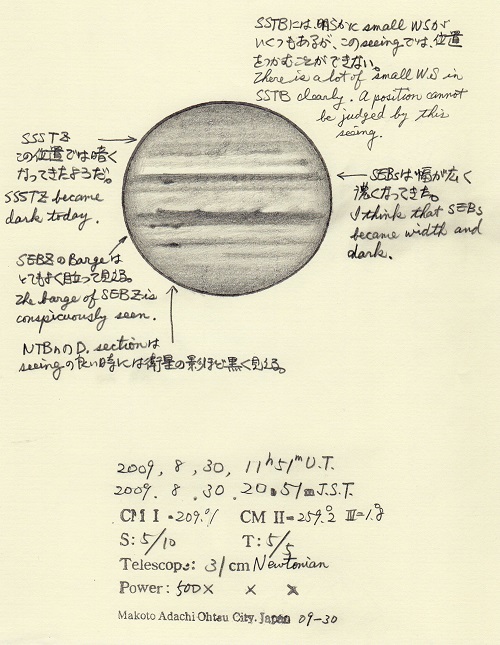 SSTBには、明らかに small WSが
いくつもあるが、このseeingでは、位置
をつかむことができない。
There is a lot of small W.S in
SSTB clearly. A position cannot
be judged by this
seeing.
SSSTZ
この位置では暗く
なってきたようだ。
SSSTZ became
dark today.
SEBsは幅が広く
濃くなってきた。
I think that SEBs
became width and
dark.
SEBZのBargeは
とてもよく目立って見える。
The barge of SEBZ is
conspicuously seen.
NTBnのD. sectionは
seeingの良い時には衛星の影ほど黒く見える。
2009, 8, 30, 11h51m U.T.
2009. 8. 30. 20h51m J.S.T.
CM I = 209.°1 CM II = 259.°2 III=1.°8
S: 5/10 T: 5/5
Telescope: 31 cm Newtonian
Power: 500× × ×
Makoto Adachi Ohtsu City. Japan 09-30